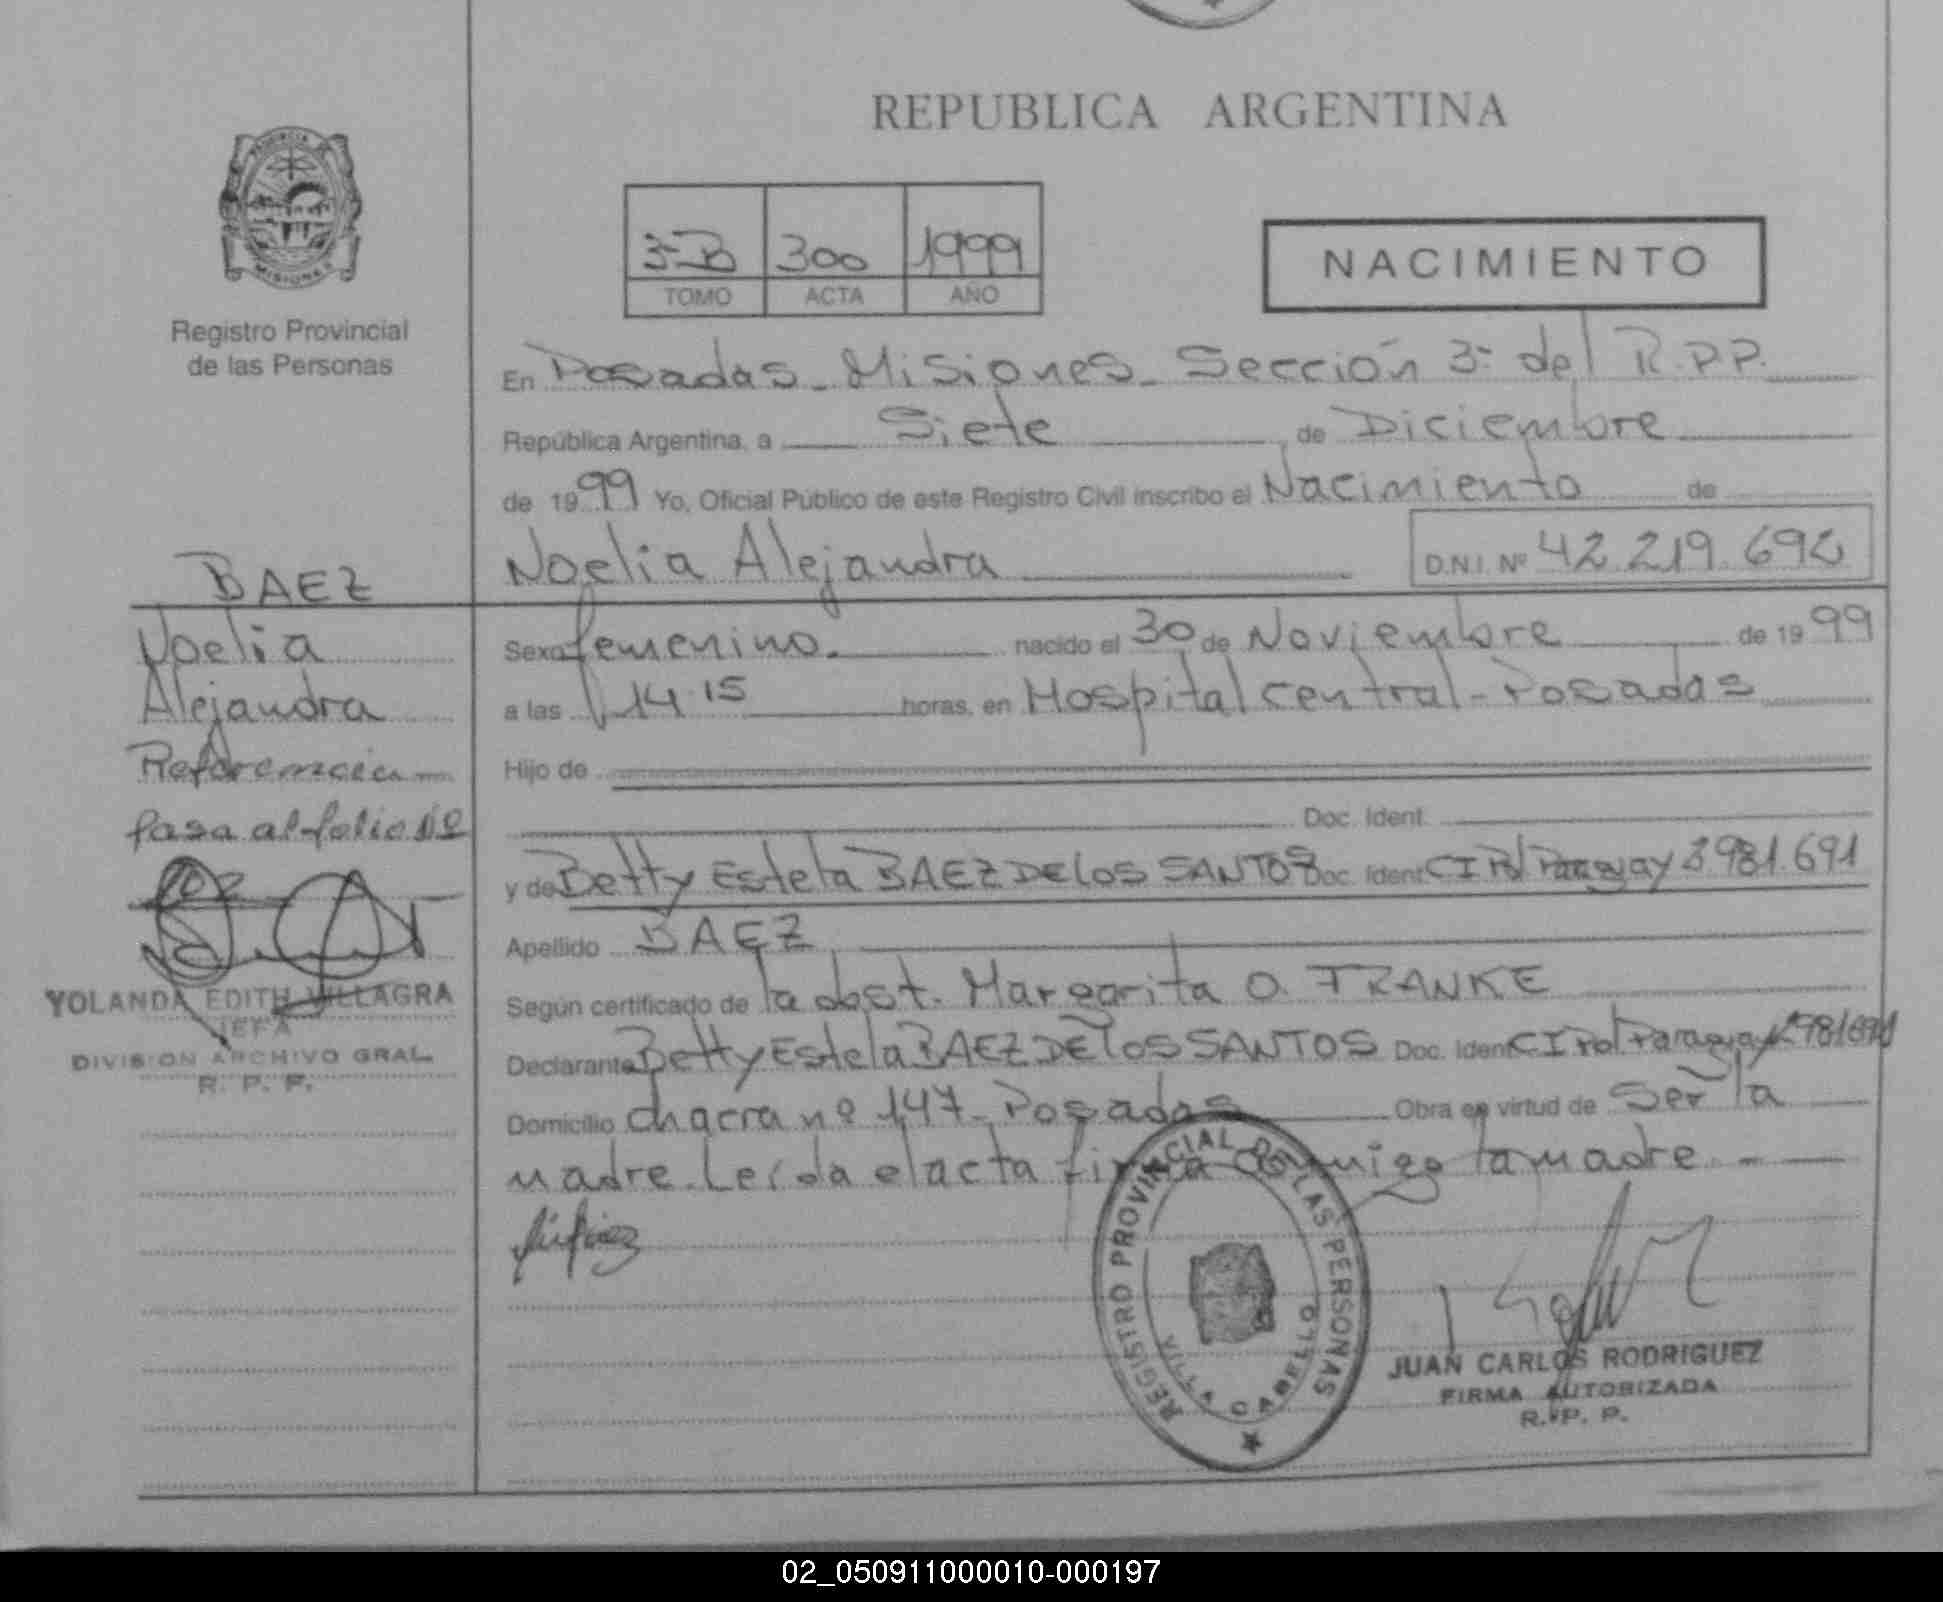 REPUBLICA ARGENTINA
PROVINCIA
MISIONES
Registro Provincial
de las Personas
3-B 300 1999
TOMO ACTA AÑO
NACIMIENTO
En Posadas - Misiones - Sección 3- del R.P.P.
República Argentina, a Siete de Diciembre
de 1999 Yo, Oficial Público de este Registro Civil inscribo el Nacimiento de
Noelia Alejandra D.N.I. Nº 42.219.692
BAEZ
Noelia
Alejandra
Referencia
pasa al folio Nº
202
YOLANDA EDITH VILLAGRA
JEFA
DIVISION ARCHIVO GRAL.
R. P. P.
Sexo femenino. nacido el 30 de Noviembre de 1999
a las 14 15 horas, en Hospital central - Posadas
Hijo de
Doc. Ident.
y de Betty Estela BAEZ DE LOS SANTOS Doc. Ident. CI Pol Paraguay 3981.691
Apellido BAEZ
Según certificado de la obst. Margarita O. TRANKE
Declarante Betty Estela BAEZ DE LOS SANTOS Doc. Ident. CI Pol Paraguay 3981691
Domicilio chacra nº 147 - Posadas Obra en virtud de Ser la
madre. Leída el acta firma conmigo la madre - —
REGISTRO PROVINCIAL DE LAS PERSONAS
VILLA CABELLO
JUAN CARLOS RODRIGUEZ
FIRMA AUTORIZADA
R. P. P.
02_050911000010-000197